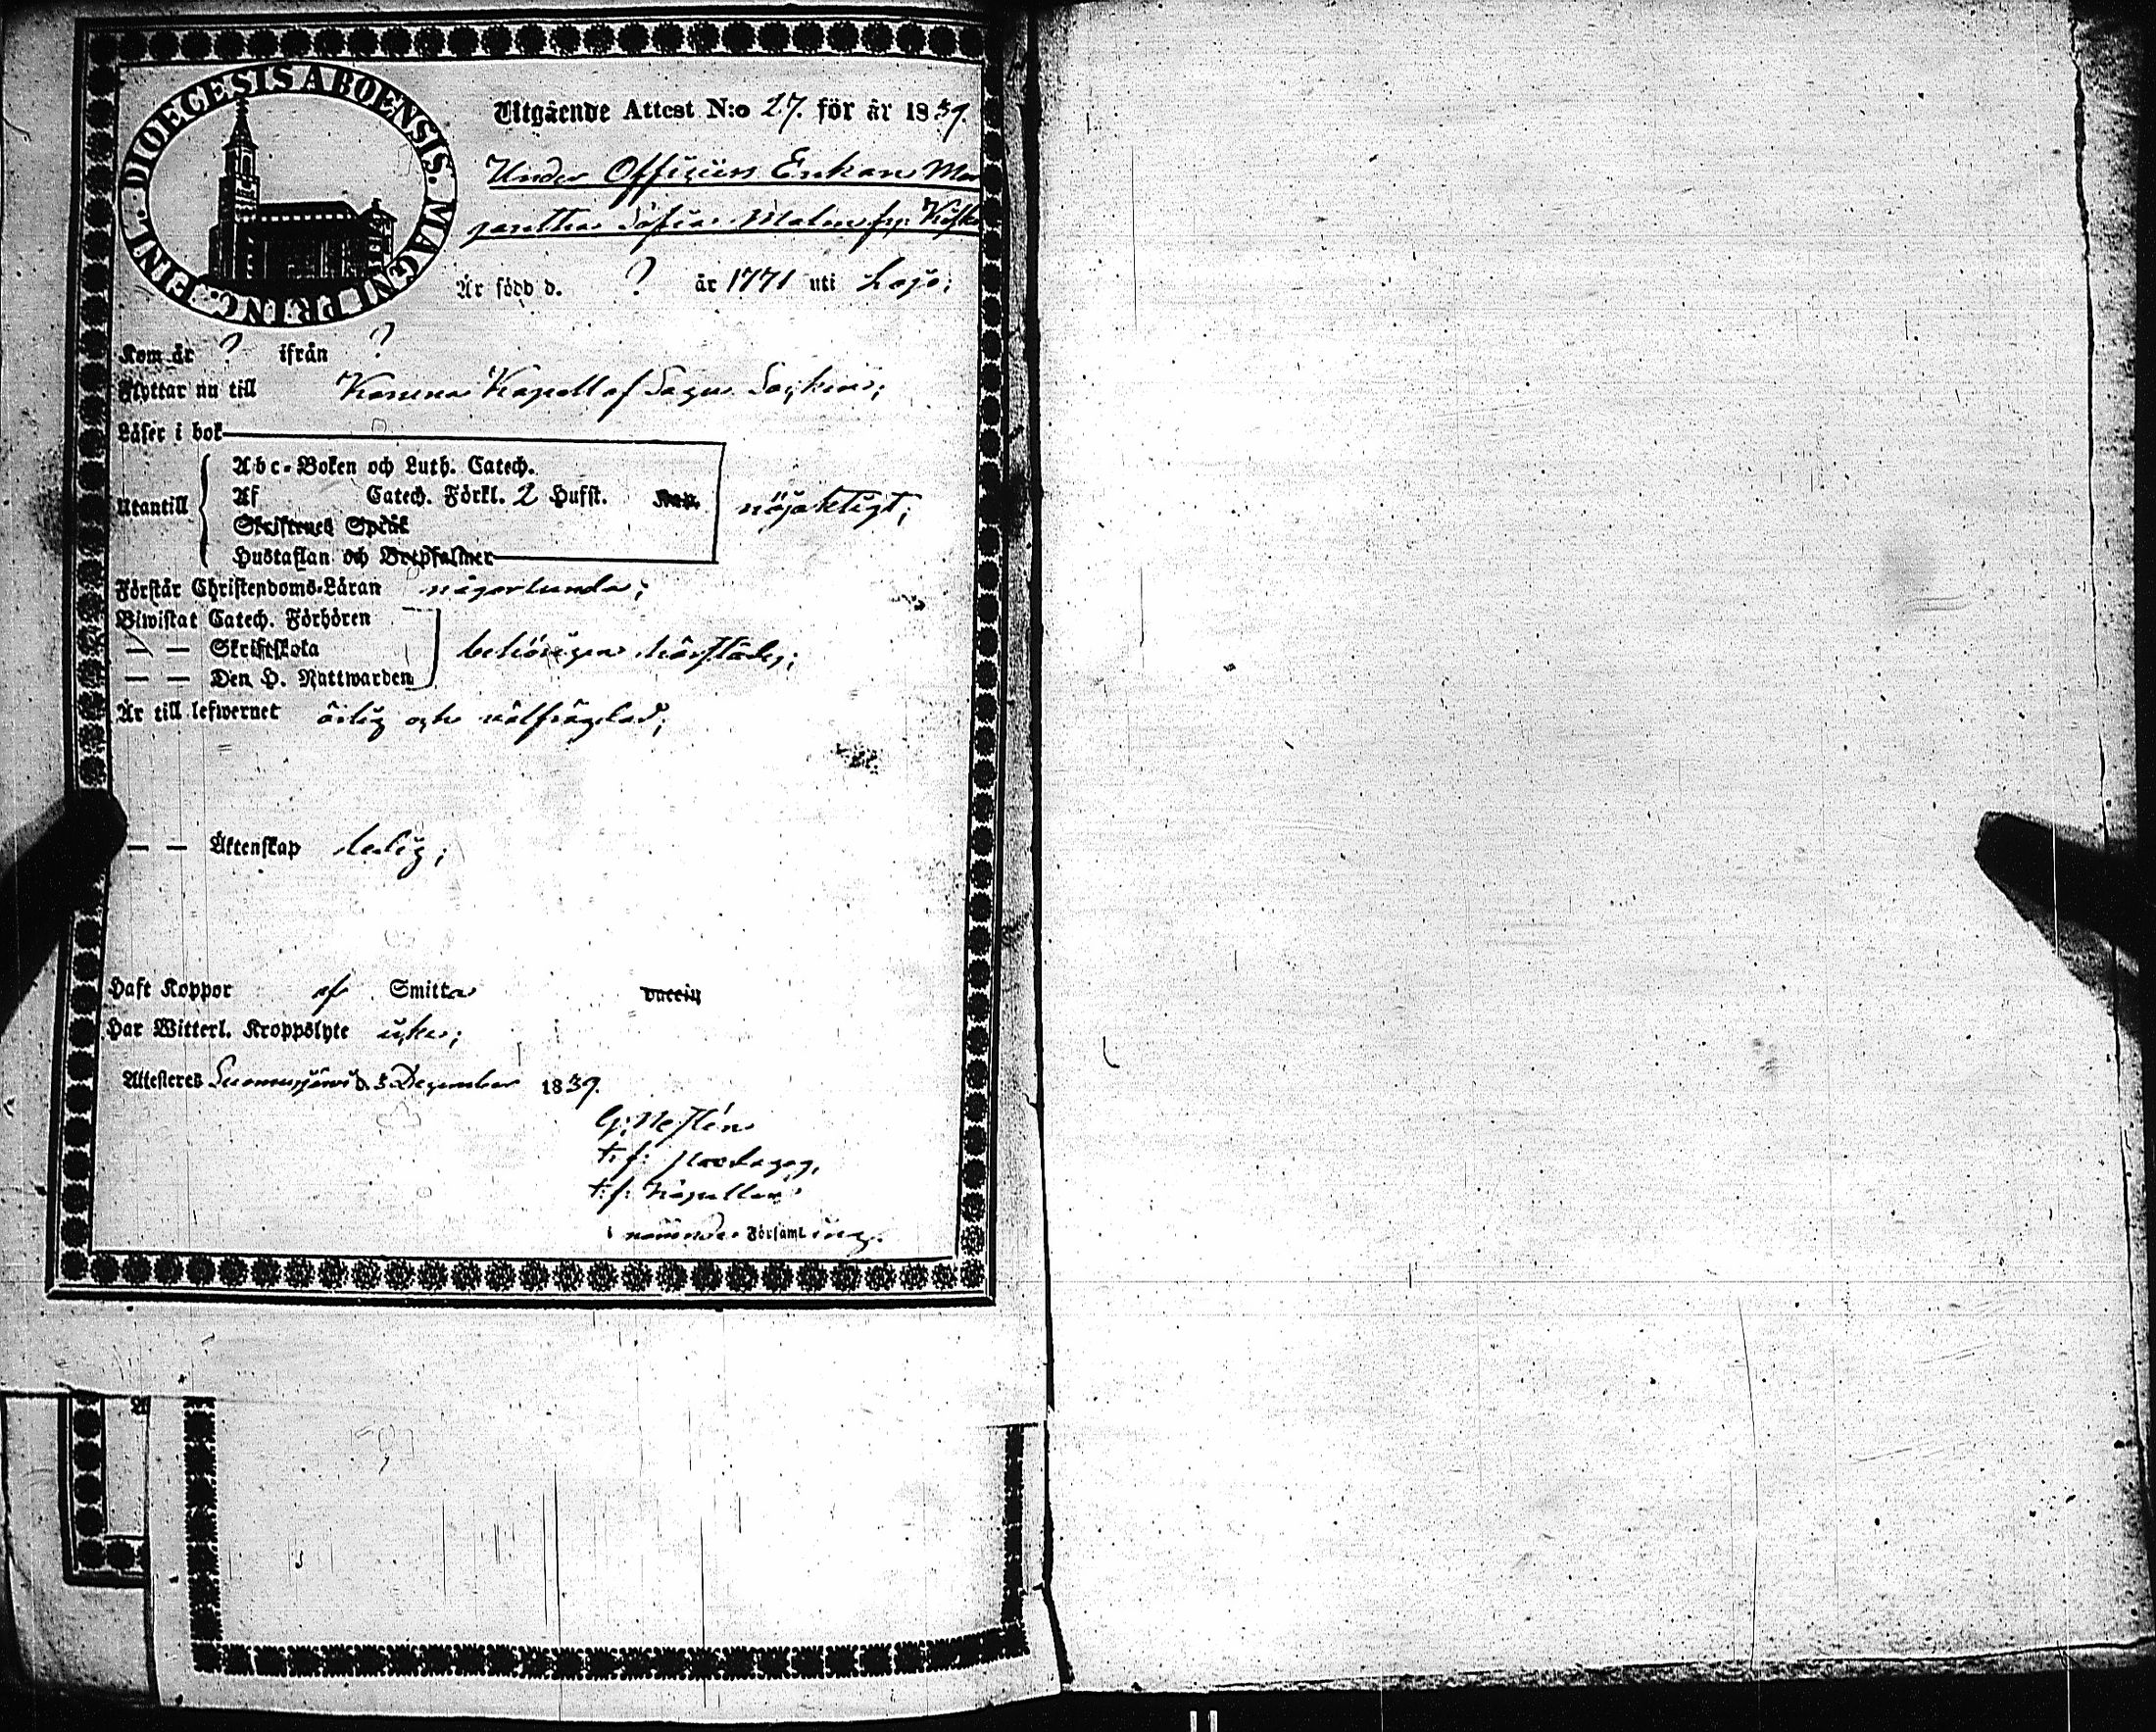 DIOECESIS ABOENSIS. MAGNI PRINC. FINL.
Utgående Attest N:o 27. för år 1839.
Under Officiers Enkan Mar
garetha Sofia Malm
Är född d. ? år 1771 uti Lojo;
Kom år ? ifrån ?
Flyttar nu till Karuna Kapell af Sagu Socken;
Läser i bok
Utantill
Abc-Boken och Luth. Catech.
Af Catech. Förkl. 2 Hufst. Kap.
nöjaktigt;
Skriftenes Språk
Hustaflan och Botpsalmer
Förstår Christendoms-Läran någorlunda;
Biwistat Catech. Förhören
— — Skriftskola
behörigen härstädes;
— — Den H. Nattwarden
Är till lefwernet ärlig och välfrägdad;
— — Äktenskap ledig;
Haft Koppor af Smitta vaccin
Har Witterl. Kroppslyte icke;
Attesteres Suomusjärvi d. 3 December 1839.
t: f: Paedagog,
t: f: Kapellan
i nämnde Församling.